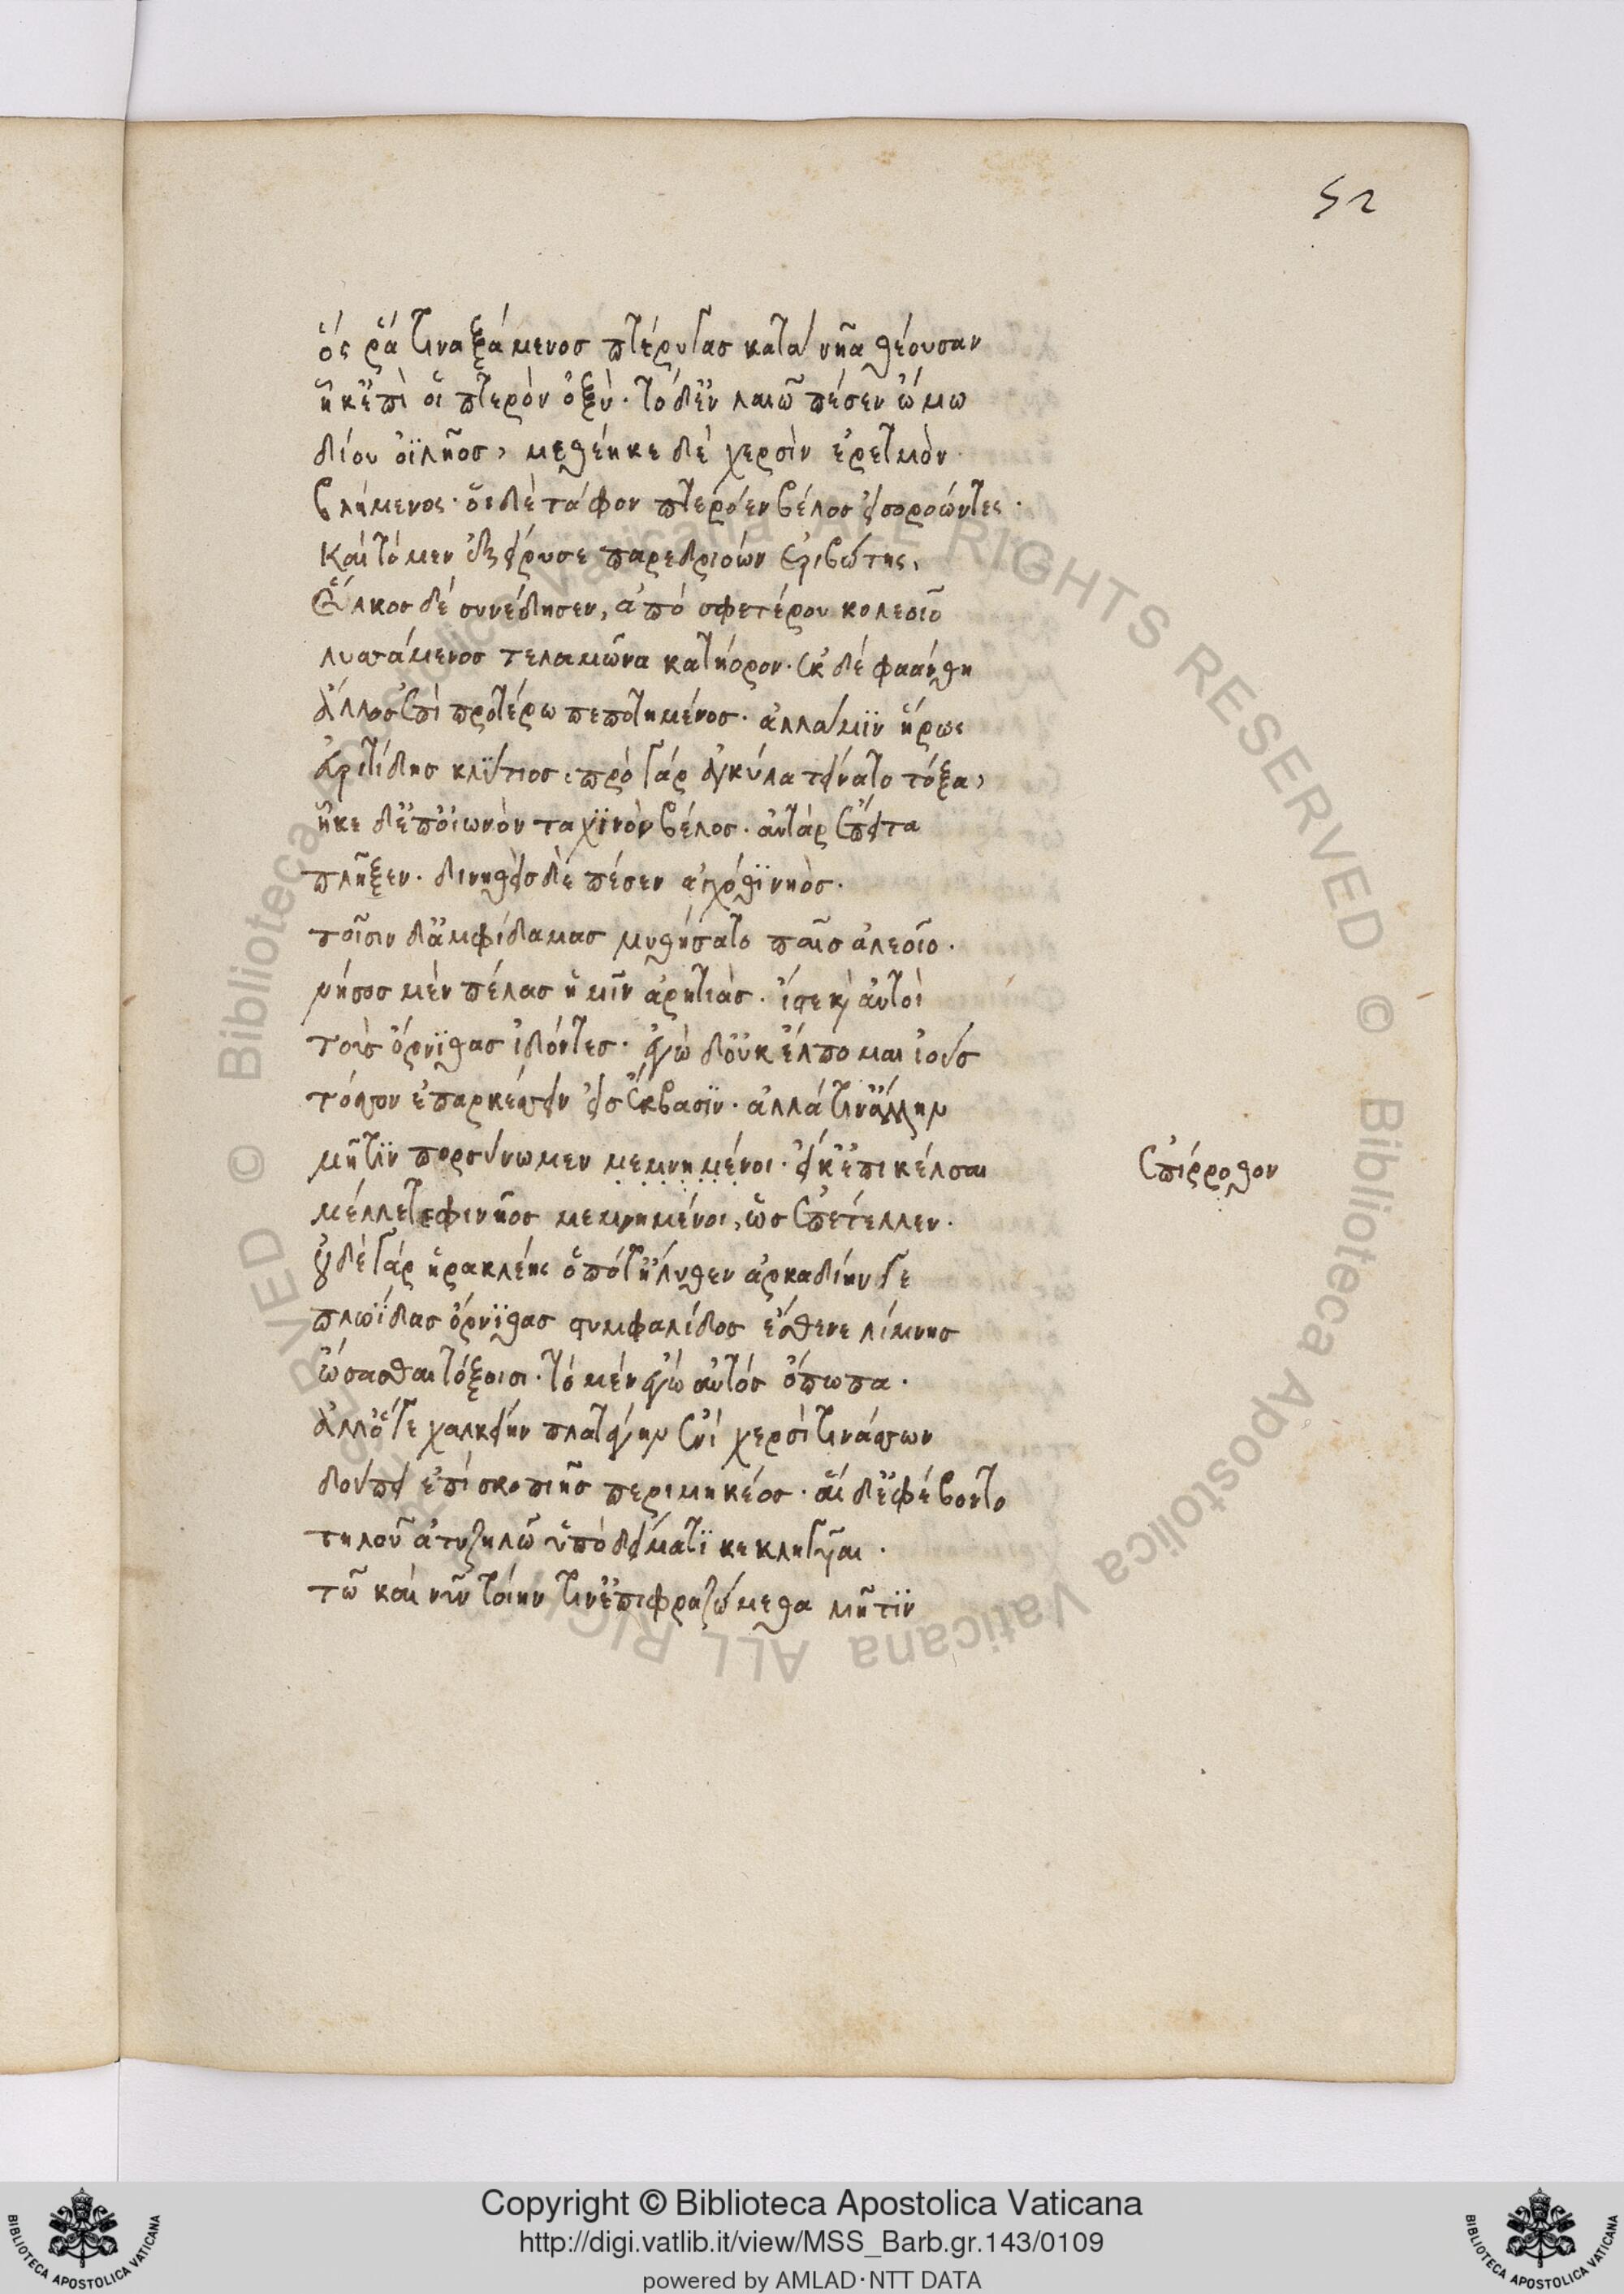 52
ὅς ῥά τιναξάμενος πτέρυγας κατὰ νῆα θέουσαν
ἧκ' ἐπὶ οἷ πτερὸν ὀξύ· τὸ δ' ἐν λαιῶ πέσεν ὤμω
δίου ὀϊλῆος, μεθέηκε δὲ χερσὶν ἐρετμὸν
βλήμενος· οἱ δὲ τάφον πτερόεν βέλος εἰσορόωντες·
καὶ τὸ μὲν ἐξείρυσε παρεδριόων ἐριβώτης,
ἕλκος δὲ συνέδησεν, ἀπὸ σφετέρου κολεοῖο
λυσάμενος τελαμῶνα κατήορον. ἐκ δὲ φαάνθη
ἄλλος ἐπὶ προτέρω πεποτημένος· ἀλλά μιν ἥρως
εὐρυτίδης κλύτιος· πρὸ γὰρ ἀγκύλα τείνατο τόξα,
ἧκε δ' ἐπ' οἰωνὸν ταχινὸν βέλος· αὐτὰρ ἔπειτα
πλῆξεν· δινηθεὶς δὲ πέσεν ἀγχόθι νηὸς·
τοῖσιν δ' ἀμφιδάμας μυθήσατο παῖς ἀλεοῖο·
νῆσος μὲν πέλας ἡμῖν ἀρητιὰς· ἴστε καὶ αὐτοὶ
τοὺς ὄρνιθας ἰδόντες· ἐγὼ δ' οὐκ ἔλπομαι ἰοὺς
τόσσον ἐπαρκέσσειν εἰς ἔκβασιν· ἀλλά τιν' ἄλλην
μῆτιν πορσύνωμεν μεμνημένοι· εἴ κ' ἐπικέλσαι
ἐπίρροθον
μέλλετε φινῆος μεμνημένοι, ὡς ἐπέτελλεν·
οὐδὲ γὰρ ἡρακλέης ὁπότ' ἤλυθεν ἀρκαδίηνδε
πλωΐδας ὄρνιθας στυμφαλίδος ἔσθενε λίμνης
ὤσασθαι τόξοισι· τὸ μέν τ' ἐγὼ αὐτὸς ὄπωπα·
ἀλλ' ὅγε χαλκείην πλαταγὴν ἐνὶ χερσὶ τινάσσων
δούπει ἐπὶ σκοπιῆς περιμήκεος· αἱ δ' ἐφέβοντο
τηλοῦ ἀτυζηλῶ ὑπὸ δείματι κεκληγυῖαι·
τῶ καὶ νῦν τοίην τιν' ἐπιφραζώμεθα μῆτιν
Copyright © Biblioteca Apostolica Vaticana
http://digi.vatlib.it/view/MSS_Barb.gr.143/0109
powered by AMLAD·NTT DATA